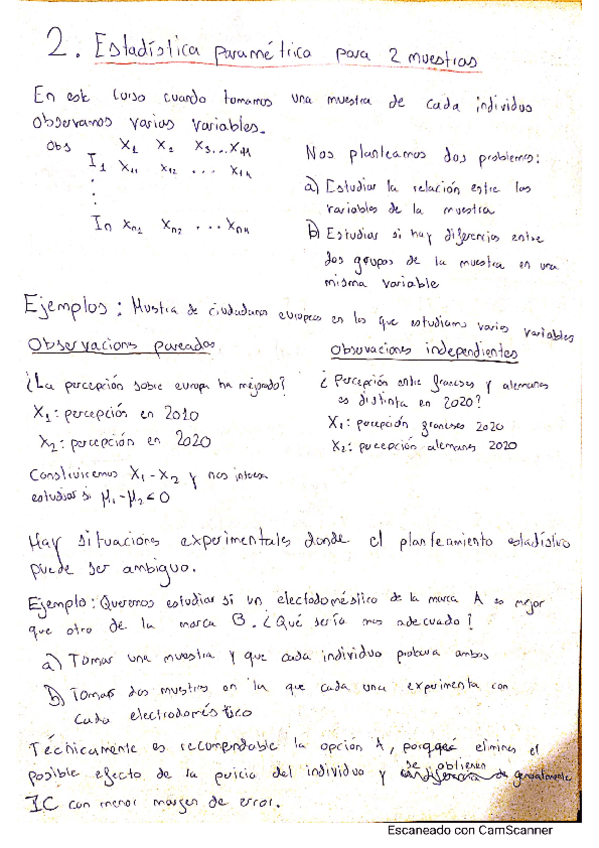 2. Estadística paramétrica para 2 muestras
En este curso cuando tomamos una muestra de cada individuo
observamos varias variables.
Obs X1 X2 X3...X4
I1 X11 X12 ...
.
.
.
In Xn1 Xn2 ...
Nos planteamos dos problemas:
a) Estudiar la relación entre las
variables de la muestra
b) Estudiar si hay diferencias entre
dos grupos de la muestra en una
misma variable
Ejemplos: Muestra de ciudadanos europeos en los que estudiamos varias variables
Observaciones pareadas
¿La percepción sobre europa ha mejorado?
X1: percepción en 2010
X2: percepción en 2020
Construiremos X1-X2 y nos interesa
estudiar si μ1-μ2<0
Observaciones independientes
¿Percepción entre franceses y alemanes
es distinta en 2020?
X1: percepción franceses 2020
X2: percepción alemanes 2020
Hay situaciones experimentales donde el planteamiento estadístico
puede ser ambiguo.
Ejemplo: Queremos estudiar si un electodoméstico de la marca A es mejor
que otro de la marca B. ¿Qué sería mas adecuado?
a) Tomar una muestra y que cada individuo probara ambos
b) Tomar dos muestras en la que cada una experimenta con
cada electrodoméstico
Técnicamente es recomendable la opción A, porque elimina el
posible efecto de la del individuo y se obtienen generalmente
IC con menor margen de error.
Escaneado con CamScanner